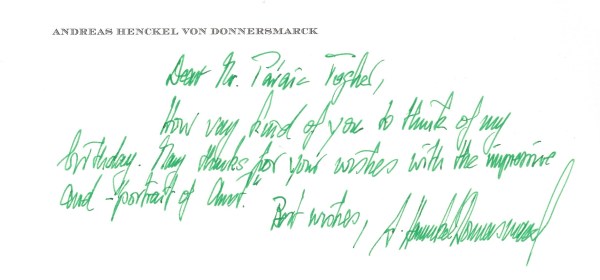 ANDREAS HENCKEL VON DONNERSMARCK
Dear Mr.
How very kind of you to think of my
birthday. Many thanks for your wishes with the impressive
card - "portrait of
Best wishes, A. Henckel Donnersmarck